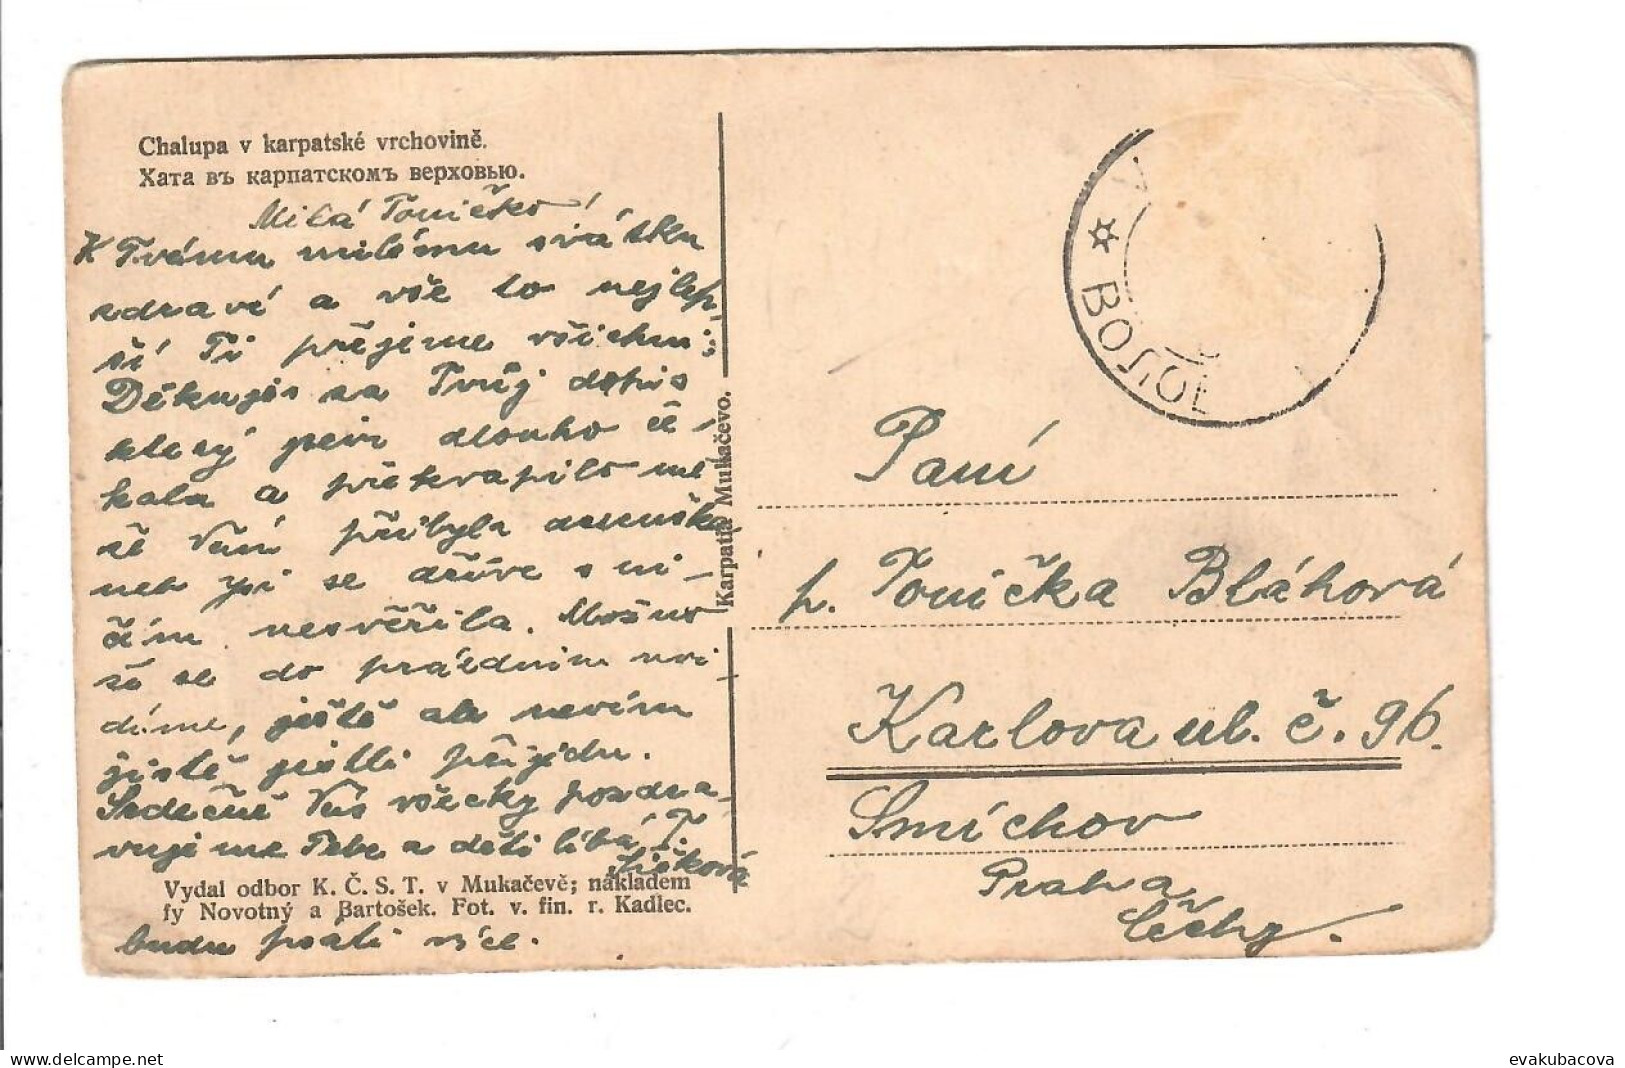 Chalupa v karpatské vrchovině.
Хата въ карпатскомъ верховью.
Milá Toničko!
K Tvému milému svátku
zdraví a vše to nejlep-
ší Ti přejeme všichni;
Děkuji za Tvůj dopis
který jsem dlouho če-
kala a překvapilo mě
že Vám přibyla
neb jsi se dříve s ni-
čím nesvěřila. Možno
že se do prázdnin uvi-
díme, ještě ale nevím
jistě jestli přijedu.
Srdečně Vás všecky pozdra-
vujeme Tebe a děti líbá T.
Jičková
Vydal odbor K. Č. S. T. v Mukačevě; nákladem
fy Novotný a Bartošek. Fot. v. fin. r. Kadlec.
budu psáti více.
Karpatia Mukačevo.
BOJ
Paní
p. Tonička Bláhová
Karlova ul. č. 96.
Smíchov
Praha
Čechy.
evakubacova